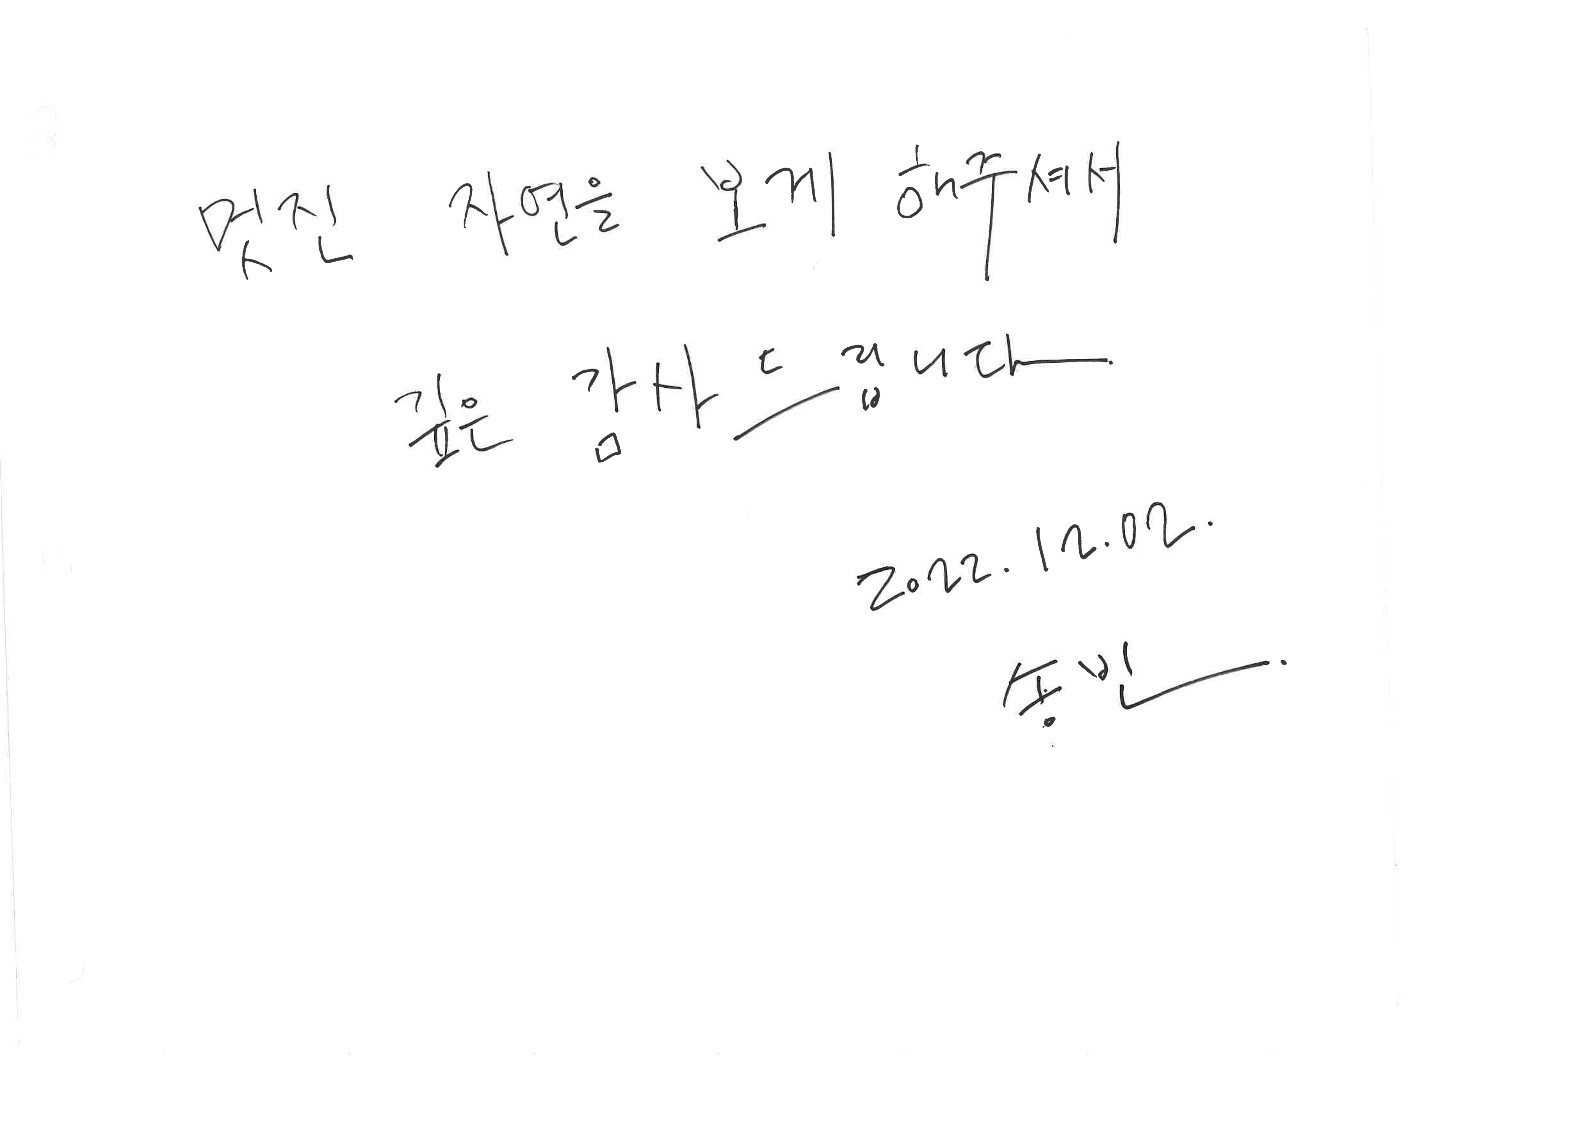 멋진 자연을 보게 해주셔서
깊은 감사드립니다.
2022. 12. 02.
송빈.